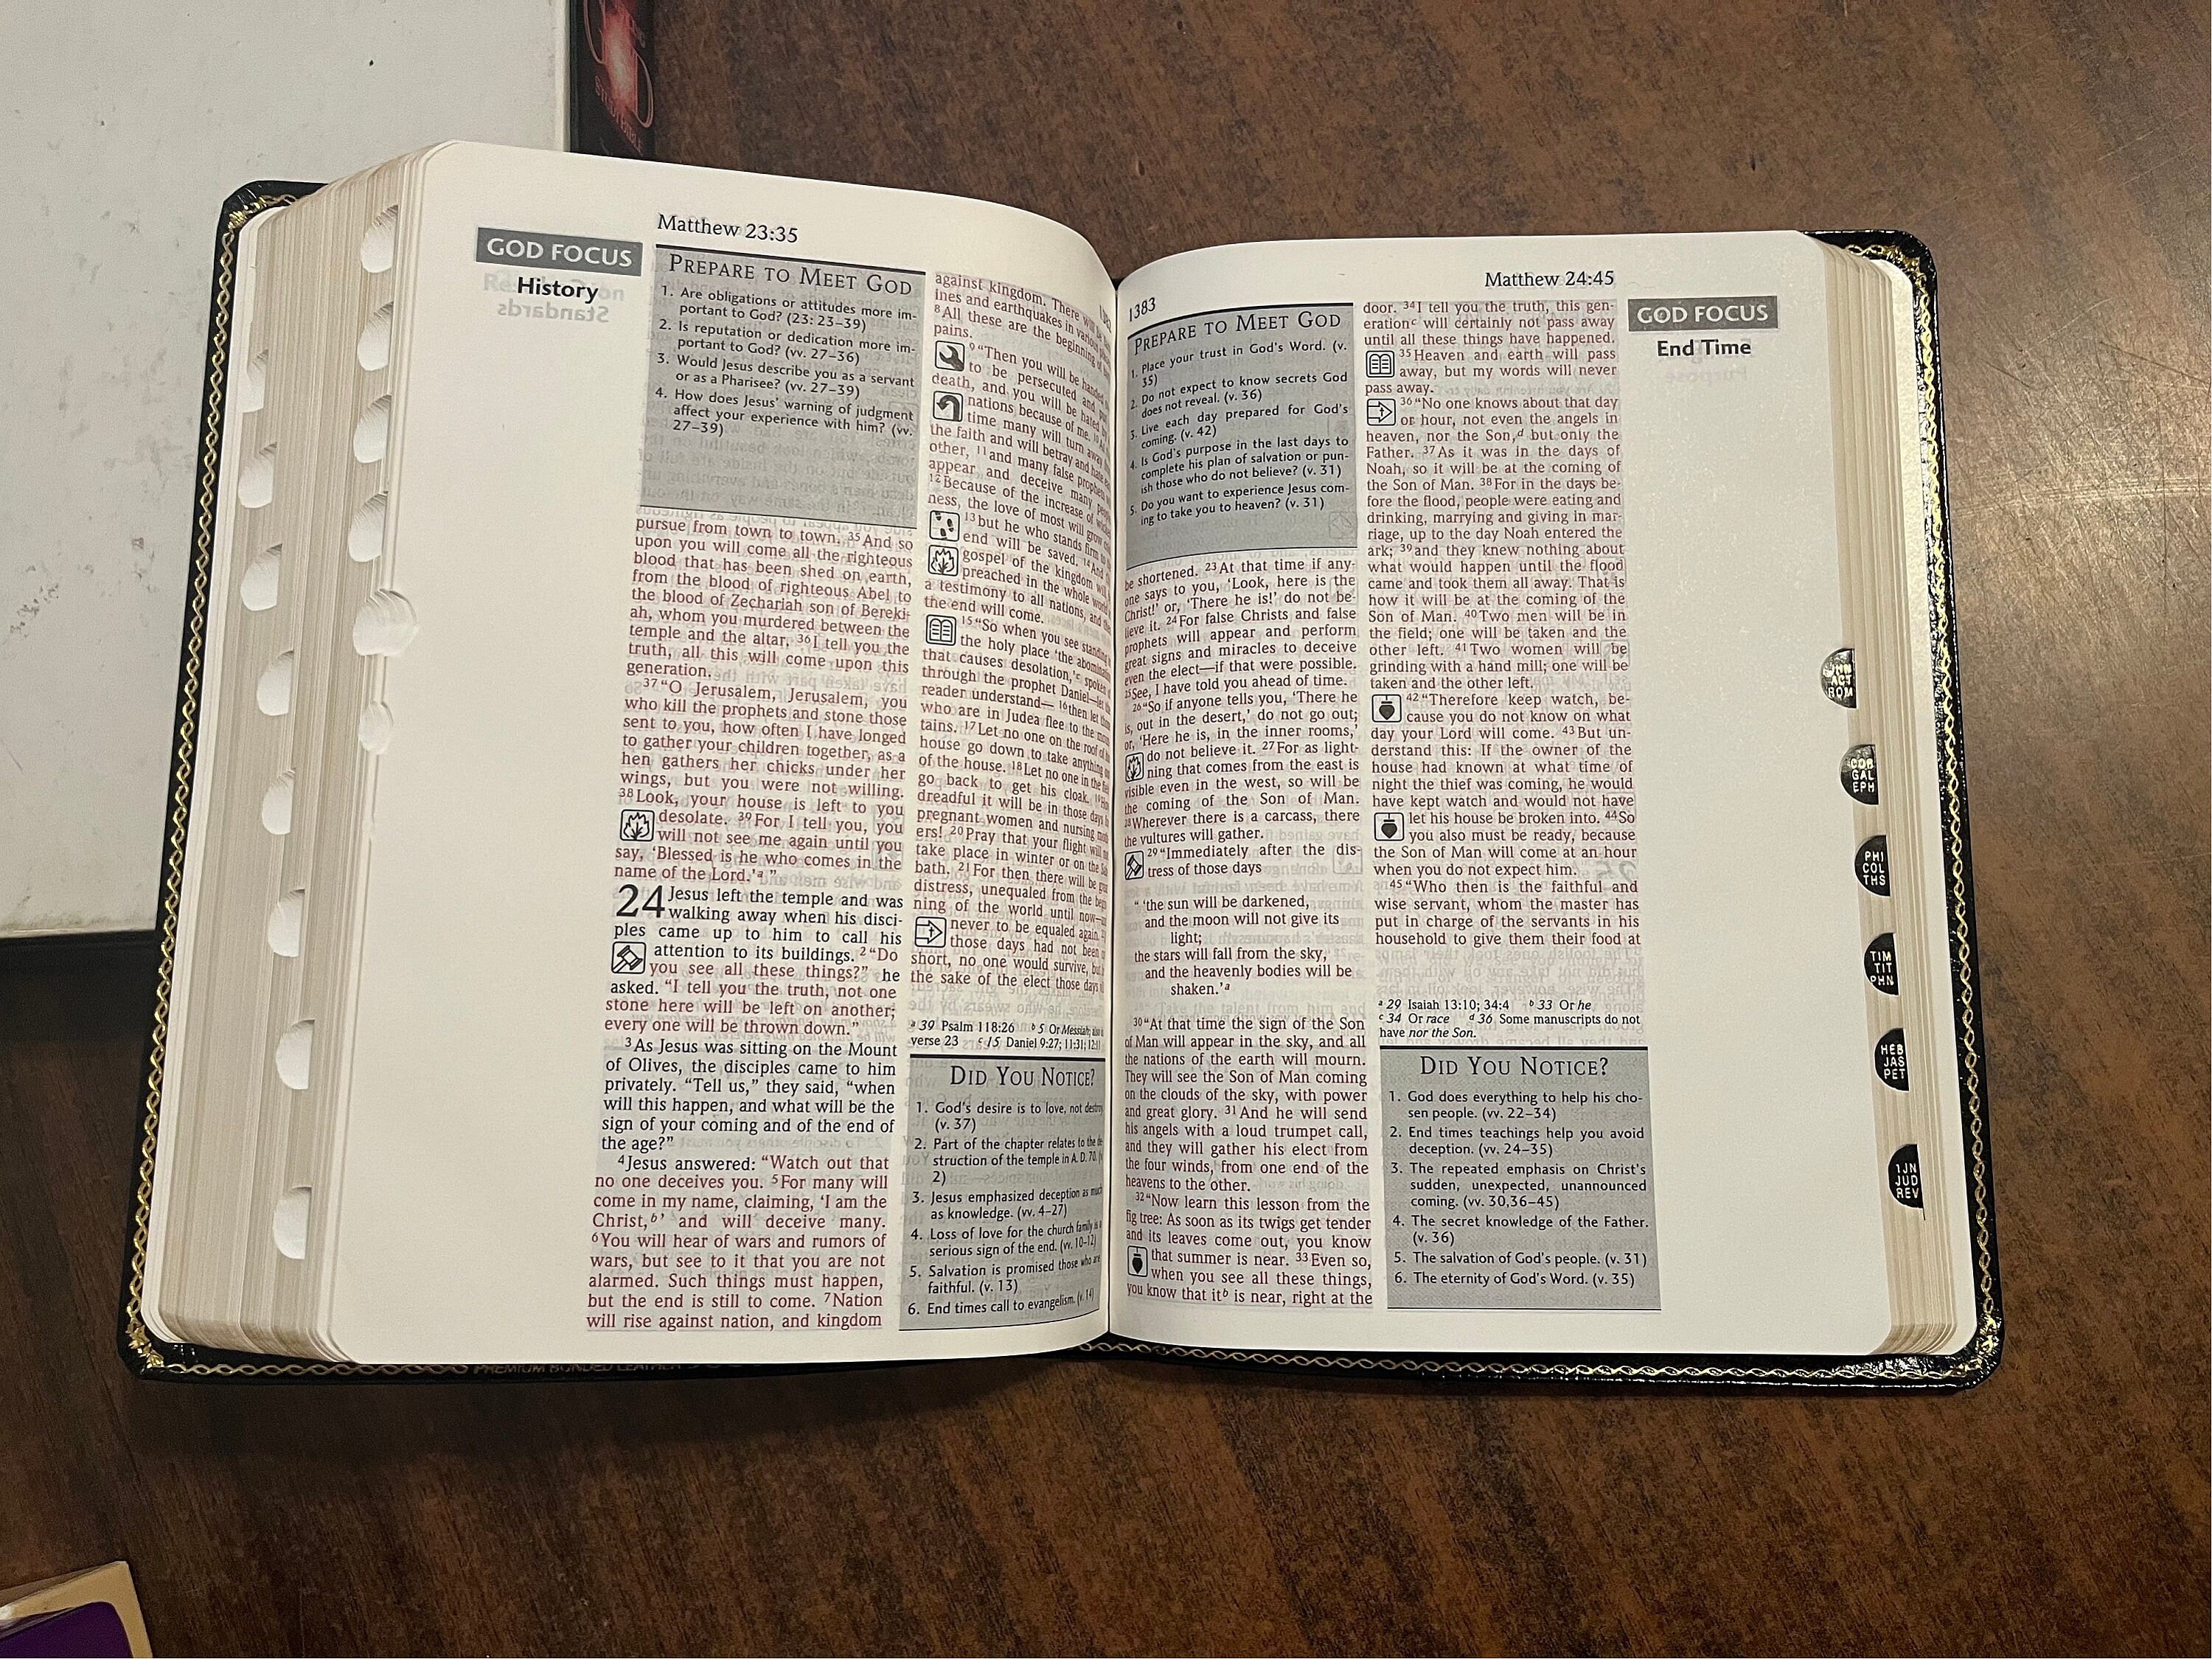 GOD FOCUS
History
Matthew 23:35
PREPARE TO MEET GOD
1. Are obligations or attitudes more im-
portant to God? (23: 23–39)
2. Is reputation or dedication more im-
portant to God? (vv. 27–36)
3. Would Jesus describe you as a servant
or as a Pharisee? (vv. 27–39)
4. How does Jesus' warning of judgment
affect your experience with him? (vv.
27–39)
pursue from town to town. 35And so
upon you will come all the righteous
blood that has been shed on earth,
from the blood of righteous Abel to
the blood of Zechariah son of Bereki-
ah, whom you murdered between the
temple and the altar. 36I tell you the
truth, all this will come upon this
generation.
37“O Jerusalem, Jerusalem, you
who kill the prophets and stone those
sent to you, how often I have longed
to gather your children together, as a
hen gathers her chicks under her
wings, but you were not willing.
38Look, your house is left to you
desolate. 39For I tell you, you
will not see me again until you
say, ‘Blessed is he who comes in the
name of the Lord.’a ”
24 Jesus left the temple and was
walking away when his disci-
ples came up to him to call his
attention to its buildings. 2“Do
you see all these things?” he
asked. “I tell you the truth, not one
stone here will be left on another;
every one will be thrown down.”
3As Jesus was sitting on the Mount
of Olives, the disciples came to him
privately. “Tell us,” they said, “when
will this happen, and what will be the
sign of your coming and of the end of
the age?”
4Jesus answered: “Watch out that
no one deceives you. 5For many will
come in my name, claiming, ‘I am the
Christ,b’ and will deceive many.
6You will hear of wars and rumors of
wars, but see to it that you are not
alarmed. Such things must happen,
but the end is still to come. 7Nation
will rise against nation, and kingdom
against kingdom. There will be
ines and earthquakes in various
8All these are the beginning of
pains.
9“Then you will be handed
to be persecuted and put
death, and you will be hated by
nations because of me.
time many will turn away
the faith and will betray and hate
other, 11and many false prophets
appear and deceive many people
12Because of the increase of
ness, the love of most will grow
13but he who stands firm
end will be saved. 14And
gospel of the kingdom will
preached in the whole world
a testimony to all nations, and
the end will come.
15“So when you see standing
the holy place ‘the
that causes desolation,’c spoken
through the prophet Daniel—let
reader understand— 16then let
who are in Judea flee to the
tains. 17Let no one on the roof of
house go down to take anything
of the house. 18Let no one in the
go back to get his cloak.
dreadful it will be in those days
pregnant women and nursing
ers! 20Pray that your flight will
take place in winter or on the
bath. 21For then there will be
distress, unequaled from the
ning of the world until now—
never to be equaled again.
those days had not been
short, no one would survive, but
the sake of the elect those days
a 39 Psalm 118:26 b 5 Or Messiah; also
verse 23 c 15 Daniel 9:27; 11:31; 12:11
DID YOU NOTICE?
1. God's desire is to love, not destroy
(v. 37)
2. Part of the chapter relates to the
struction of the temple in A.D. 70.
2)
3. Jesus emphasized deception as much
as knowledge. (vv. 4–27)
4. Loss of love for the church family is
serious sign of the end. (vv. 10–12)
5. Salvation is promised those who are
faithful. (v. 13)
6. End times call to evangelism. (v. 14)
PREMIUM BONDED LEATHER
1383
Matthew 24:45
PREPARE TO MEET GOD
1. Place your trust in God's Word. (v.
35)
2. Do not expect to know secrets God
does not reveal. (v. 36)
3. Live each day prepared for God's
coming. (v. 42)
4. Is God's purpose in the last days to
complete his plan of salvation or pun-
ish those who do not believe? (v. 31)
5. Do you want to experience Jesus com-
ing to take you to heaven? (v. 31)
be shortened. 23At that time if any-
one says to you, ‘Look, here is the
Christ!’ or, ‘There he is!’ do not be-
lieve it. 24For false Christs and false
prophets will appear and perform
great signs and miracles to deceive
even the elect—if that were possible.
25See, I have told you ahead of time.
26“So if anyone tells you, ‘There he
is, out in the desert,’ do not go out;
or, ‘Here he is, in the inner rooms,’
do not believe it. 27For as light-
ning that comes from the east is
visible even in the west, so will be
the coming of the Son of Man.
28Wherever there is a carcass, there
the vultures will gather.
29“Immediately after the dis-
tress of those days
“ ‘the sun will be darkened,
and the moon will not give its
light;
the stars will fall from the sky,
and the heavenly bodies will be
shaken.’a
30“At that time the sign of the Son
of Man will appear in the sky, and all
the nations of the earth will mourn.
They will see the Son of Man coming
on the clouds of the sky, with power
and great glory. 31And he will send
his angels with a loud trumpet call,
and they will gather his elect from
the four winds, from one end of the
heavens to the other.
32“Now learn this lesson from the
fig tree: As soon as its twigs get tender
and its leaves come out, you know
that summer is near. 33Even so,
when you see all these things,
you know that itb is near, right at the
door. 34I tell you the truth, this gen-
erationc will certainly not pass away
until all these things have happened.
35Heaven and earth will pass
away, but my words will never
pass away.
36“No one knows about that day
or hour, not even the angels in
heaven, nor the Son,d but only the
Father. 37As it was in the days of
Noah, so it will be at the coming of
the Son of Man. 38For in the days be-
fore the flood, people were eating and
drinking, marrying and giving in mar-
riage, up to the day Noah entered the
ark; 39and they knew nothing about
what would happen until the flood
came and took them all away. That is
how it will be at the coming of the
Son of Man. 40Two men will be in
the field; one will be taken and the
other left. 41Two women will be
grinding with a hand mill; one will be
taken and the other left.
42“Therefore keep watch, be-
cause you do not know on what
day your Lord will come. 43But un-
derstand this: If the owner of the
house had known at what time of
night the thief was coming, he would
have kept watch and would not have
let his house be broken into. 44So
you also must be ready, because
the Son of Man will come at an hour
when you do not expect him.
45“Who then is the faithful and
wise servant, whom the master has
put in charge of the servants in his
household to give them their food at
a 29 Isaiah 13:10; 34:4 b 33 Or he
c 34 Or race d 36 Some manuscripts do not
have nor the Son.
DID YOU NOTICE?
1. God does everything to help his cho-
sen people. (vv. 22–34)
2. End times teachings help you avoid
deception. (vv. 24–35)
3. The repeated emphasis on Christ's
sudden, unexpected, unannounced
coming. (vv. 30,36–45)
4. The secret knowledge of the Father.
(v. 36)
5. The salvation of God's people. (v. 31)
6. The eternity of God's Word. (v. 35)
GOD FOCUS
End Time
JHN
ACT
ROM
COR
GAL
EPH
PHI
COL
THS
TIM
TIT
PHN
HEB
JAS
PET
1JN
JUD
REV